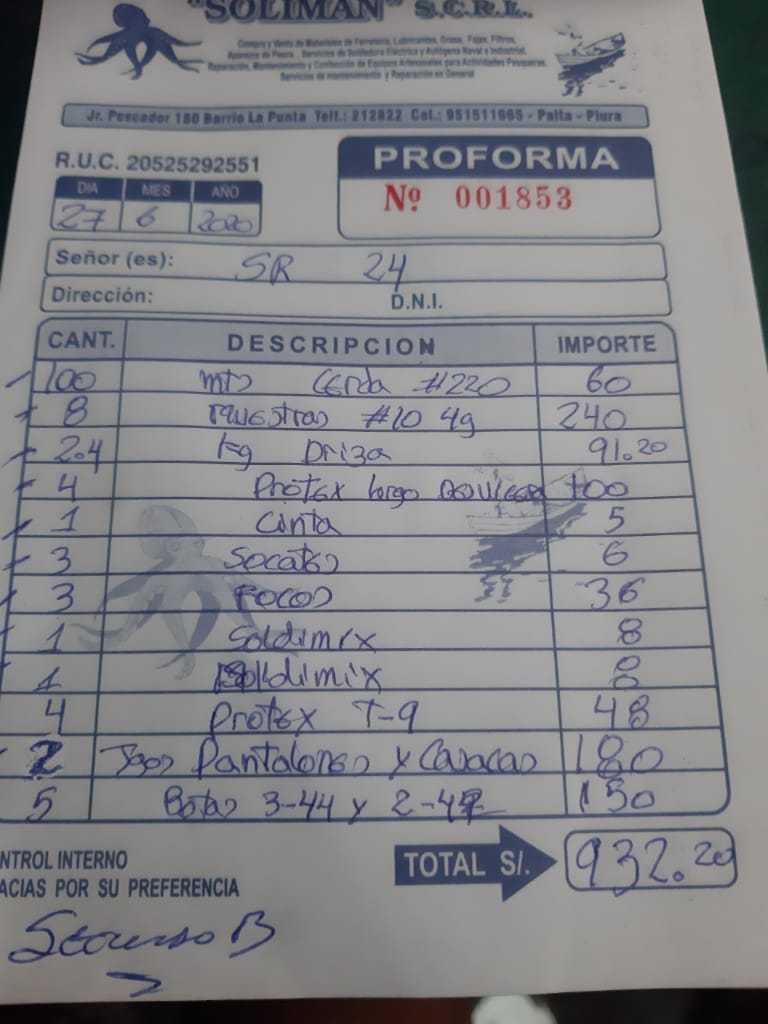 "SOLIMAN" S.C.R.L.
Compra y Venta de Materiales de Ferretería, Lubricantes, Grasa, Fajas, Filtros,
Aparejos de Pesca. Servicios de Soldadura Eléctrica y Autógena Naval e Industrial.
Reparación, Mantenimiento y Confección de Equipos Artesanales para Actividades Pesqueras.
Servicios de mantenimiento y Reparación en General
Jr. Pescador 180 Barrio La Punta Telf.: 212822 Cel.: 951511665 - Paita - Piura
R.U.C. 20525292551
PROFORMA
Nº 001853
DIA MES AÑO
27 6 2020
Señor (es): SR 24
Dirección: D.N.I.
CANT. DESCRIPCION IMPORTE
100 mts Cerda #220 60
8 muestras #10 4g 240
2.4 kg Driza 91.20
4 Protex largo 100
1 Cinta 5
3 Socates 6
3 Focos 36
1 Soldimix 8
1 Soldimix 8
4 Protex T-9 48
2 Jgos Pantalones y Casacas 180
5 Botas 3-44 y 2-42 150
NTROL INTERNO
ACIAS POR SU PREFERENCIA
TOTAL S/. 932.20
B